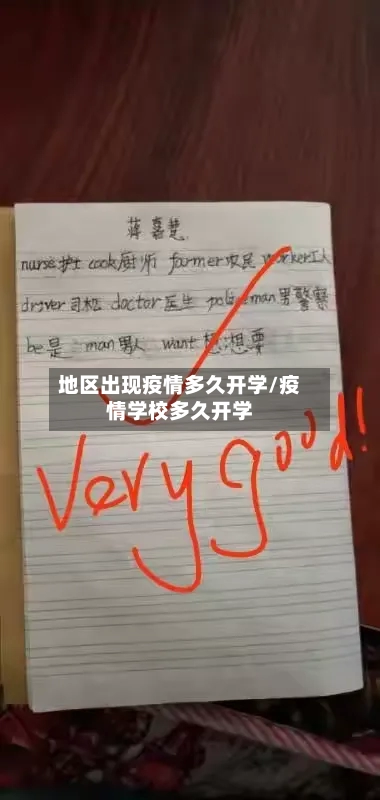 蒋嘉慧
nurse护士 cook厨师 farmer农民 worker工人
driver司机 doctor医生 policeman男警察
be是 man男人 want想,想要
地区出现疫情多久开学/疫
情学校多久开学
Very good!